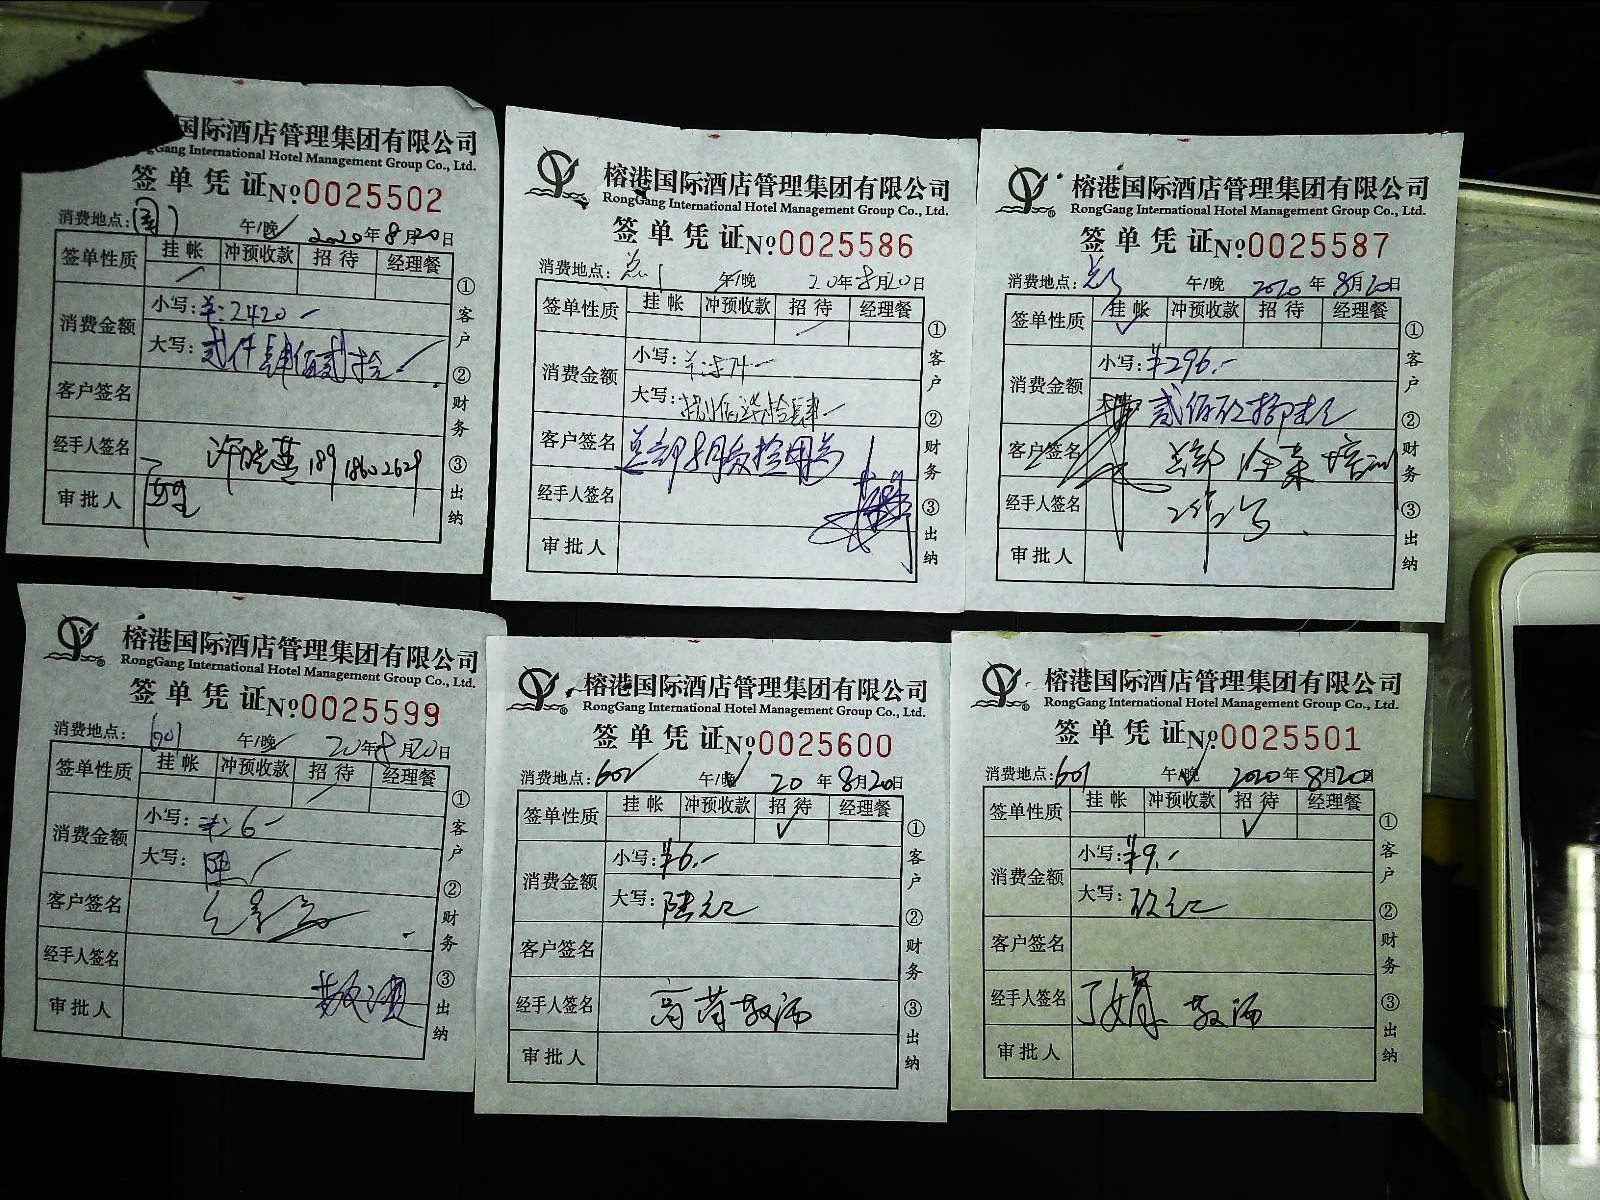 国际酒店管理集团有限公司
Gang International Hotel Management Group Co., Ltd.
签单凭证 №0025502
消费地点: 午/晚 2020年8月20日
签单性质 挂帐 冲预收款 招待 经理餐
消费金额 小写:¥:2420-
大写:贰仟肆佰贰拾
客户签名
经手人签名 许晓 18918602629
审批人
①客户 ②财务 ③出纳
榕港国际酒店管理集团有限公司
RongGang International Hotel Management Group Co., Ltd.
签单凭证 №0025586
消费地点: 午/晚 20年8月20日
签单性质 挂帐 冲预收款 招待 经理餐
消费金额 小写:
大写:捌佰柒拾肆-
客户签名 总部8月
经手人签名
审批人
①客户 ②财务 ③出纳
榕港国际酒店管理集团有限公司
RongGang International Hotel Management Group Co., Ltd.
签单凭证 №0025587
消费地点: 午/晚 2020年8月20日
签单性质 挂帐 冲预收款 招待 经理餐
消费金额 小写:¥296.-
大写:贰佰玖拾陆元
客户签名 总部 培训
经手人签名 工作
审批人
①客户 ②财务 ③出纳
榕港国际酒店管理集团有限公司
RongGang International Hotel Management Group Co., Ltd.
签单凭证 №0025599
消费地点: 601 午/晚 20年8月20日
签单性质 挂帐 冲预收款 招待 经理餐
消费金额 小写:¥:6-
大写:陆
客户签名
经手人签名
审批人
①客户 ②财务 ③出纳
榕港国际酒店管理集团有限公司
RongGang International Hotel Management Group Co., Ltd.
签单凭证 №0025600
消费地点: 602 午/晚 20年8月20日
签单性质 挂帐 冲预收款 招待 经理餐
消费金额 小写:¥6.-
大写:陆元
客户签名
经手人签名 敬酒
审批人
①客户 ②财务 ③出纳
榕港国际酒店管理集团有限公司
RongGang International Hotel Management Group Co., Ltd.
签单凭证 №0025501
消费地点: 601 午/晚 2020年8月20日
签单性质 挂帐 冲预收款 招待 经理餐
消费金额 小写:¥9.-
大写:玖元
客户签名
经手人签名 敬酒
审批人
①客户 ②财务 ③出纳